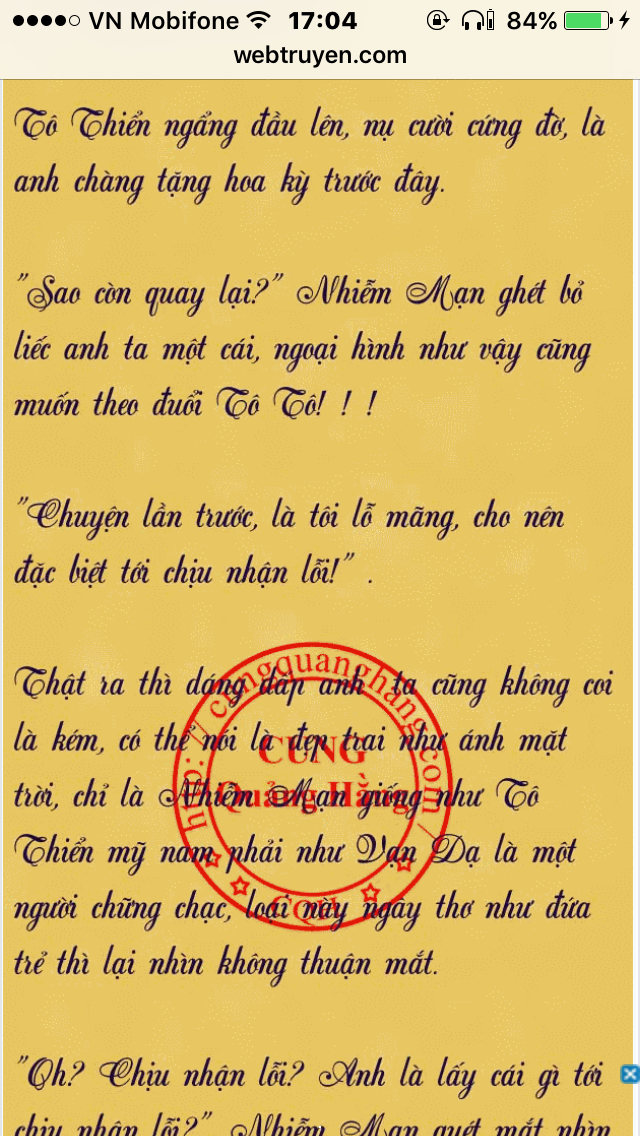 VN Mobifone 17:04 84%
webtruyen.com
Tô Thiển ngẩng đầu lên, nụ cười cứng đờ, là
anh chàng tặng hoa kỳ trước đây.
"Sao còn quay lại?" Nhiễm Mạn ghét bỏ
liếc anh ta một cái, ngoại hình như vậy cũng
muốn theo đuổi Tô Tô! ! !
"Chuyện lần trước, là tôi lỗ mãng, cho nên
đặc biệt tới chịu nhận lỗi!" .
Thật ra thì dáng dấp anh ta cũng không coi
là kém, có thể nói là đẹp trai như ánh mặt
trời, chỉ là Nhiễm Mạn giống như Tô
Thiển mỹ nam phải như Vạn Dạ là một
người chững chạc, loại này ngây thơ như đứa
trẻ thì lại nhìn không thuận mắt.
"Oh? Chịu nhận lỗi? Anh là lấy cái gì tới
chịu nhận lỗi?" Nhiễm Mạn quét mắt nhìn
http://cungquanghang.com/
CUNG
Quảng Hằng
CQH